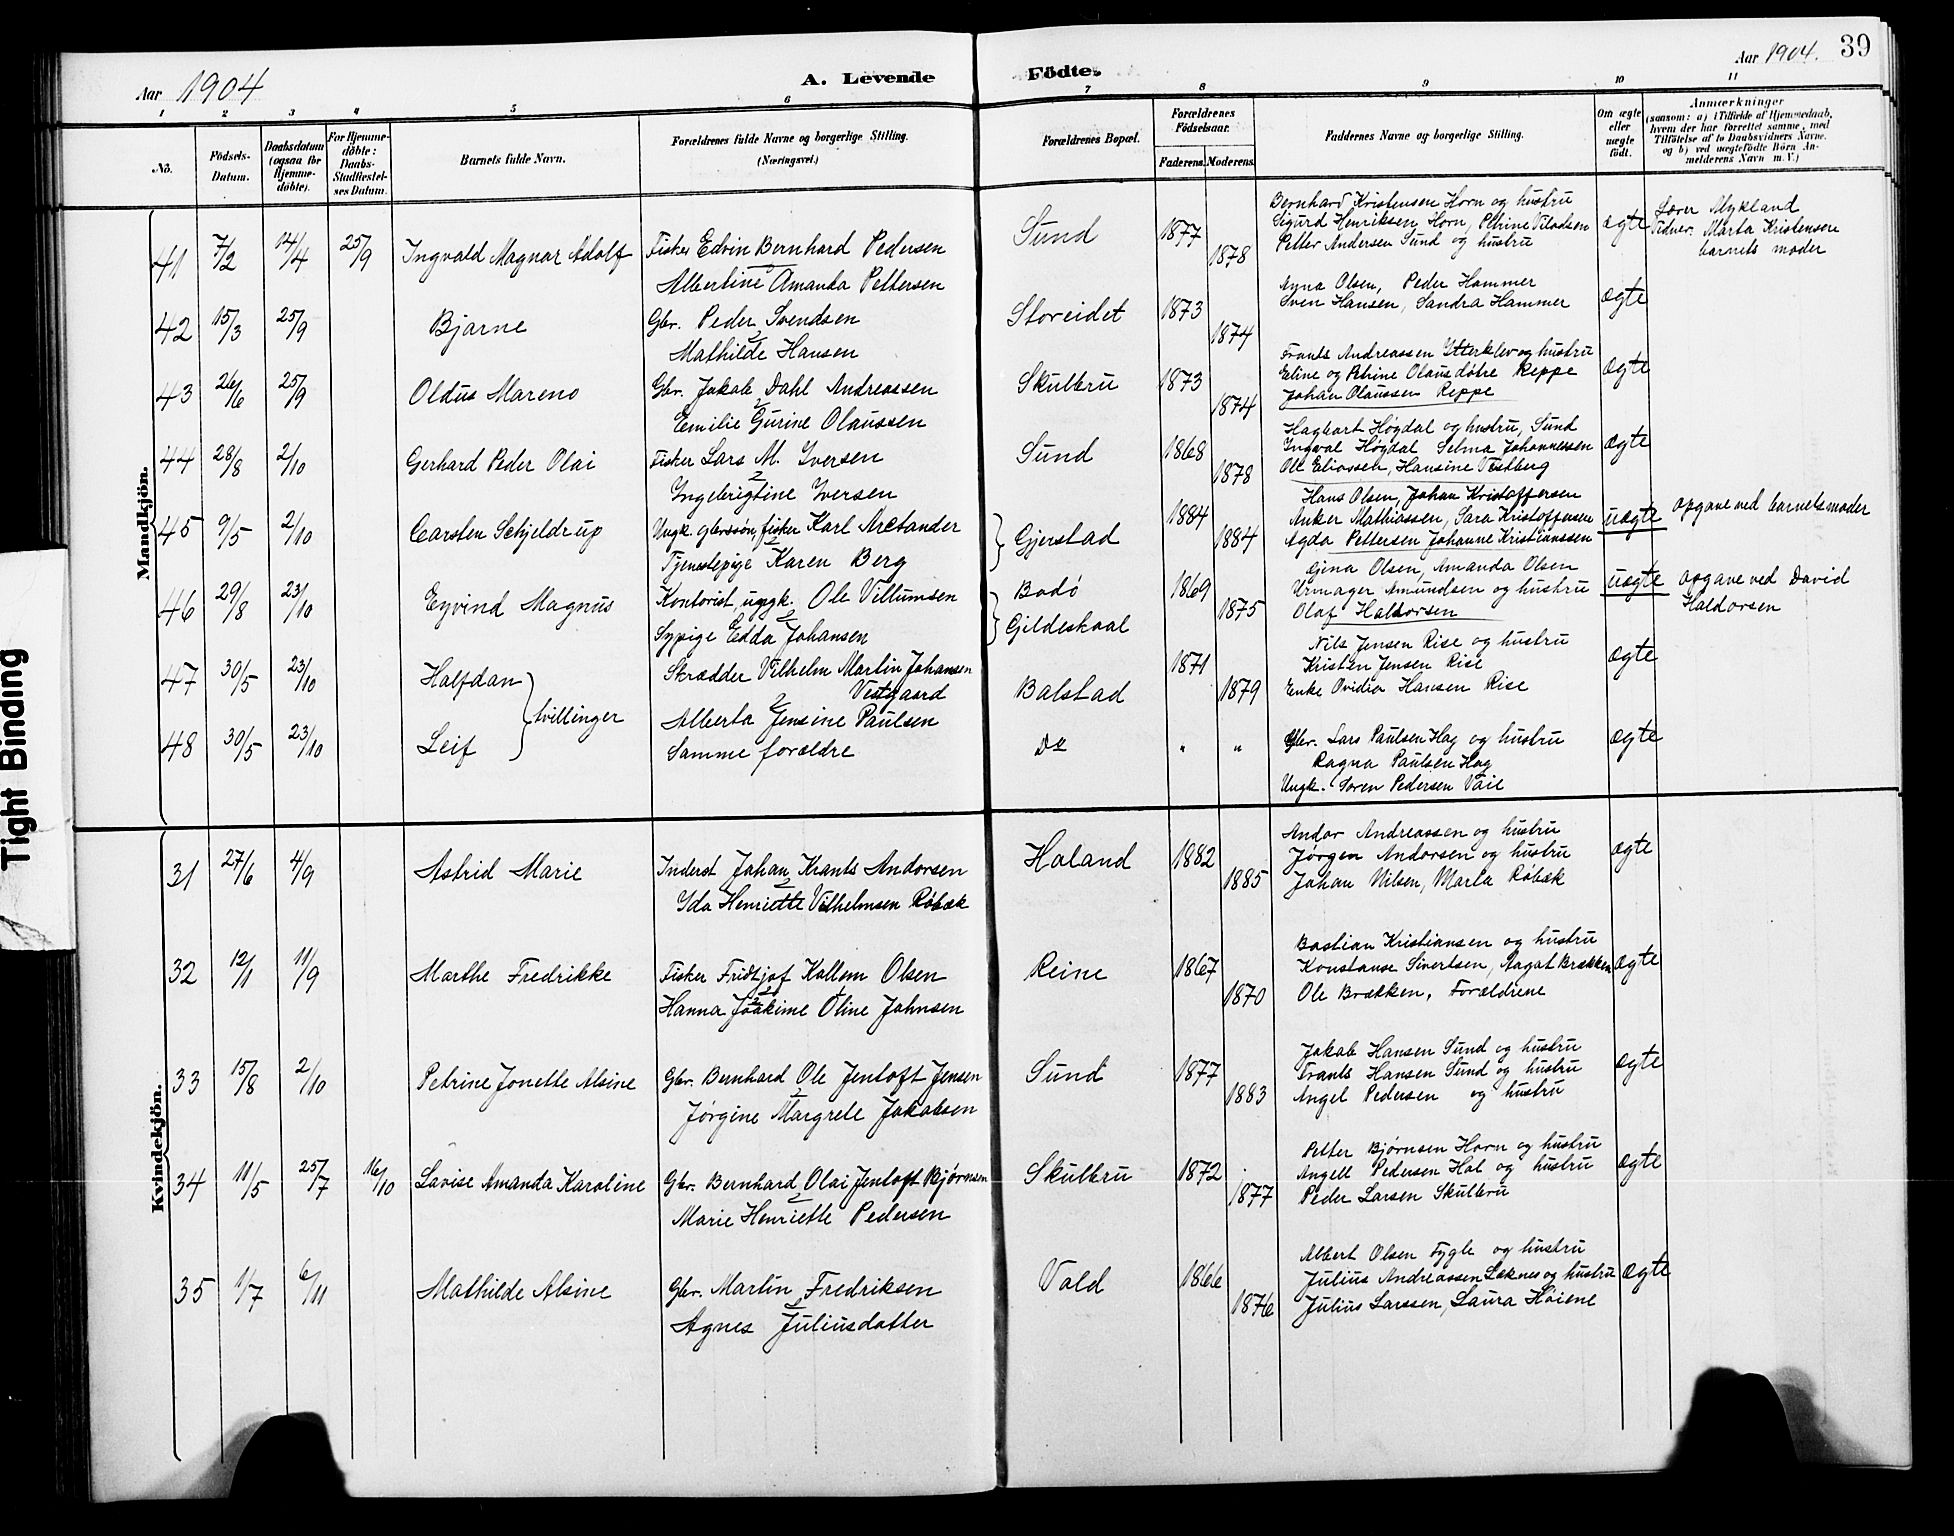 Tight Binding
Aar 1904
A. Levende
Födte.
Aar 1904.
39
1 2 3 4 5 6 7 8 9 10 11
No.
Födsels-
Datum.
Daabsdatum
(ogsaa for
Hjemme-
døbte).
For Hjemme-
døbte:
Daabs-
Stadfæstel-
ses Datum.
Barnets fulde Navn.
Forældrenes fulde Navne og borgerlige Stilling.
(Næringsvei.)
Forældrenes Bopæl.
Forældrenes
Födselsaar.
Faderens.
Moderens.
Faddernes Navne og borgerlig Stilling.
Om ægte
eller
uægte
födt.
Anmærkninger
(saasom: a) i Tilfælde af Hjemmedaab,
hvem der har forrettet samme, med
Tilföielse af to Daabsvidners Navne.
og b) ved uægtefödte Börn An-
melderens Navn m. V.)
Mandkjön.
41 7/2 14/4 25/9 Ingvald Magnar Adolf Fisker Edvin Bernhard Pedersen
Albertine Amanda Pettersen
Sund 1877 1878
Bernhard Kristensen Horn og hustru
Sigurd Henriksen Horn, Petrine
Petter Andersen Sund og hustru
ægte
Lærer Mykland
Vidner: Marta Kristensen
barnets moder
42 15/3 25/9 Bjarne Gbr. Peder Svendsen
Mathilde Hansen
Storeidet 1873 1874
Anna Olsen, Peder Hammer
Sven Hansen, Sandra Hammer
ægte
43 26/6 25/9 Oldus Mareno Gbr. Jakob Dahl Andreassen
Emilie Gurine Olaussen
Skulbru 1873 1874
Frants Andreassen Ytterklev og hustru
Eline og Petrine Olausdøtre Reppe
Johan Olaussen Reppe
ægte
44 28/8 2/10 Gerhard Peder Olai Fisker Lars M. Iversen
Ingebrigtine Iversen
Sund 1868 1878
Hagbart Høgdal og hustru, Sund
Ingval Høgdal Selma Johannessen
Ole Eliassen, Hansine Vestberg
ægte
45 9/5 2/10 Carsten Schjeldrup Ungk. gbrssøn, fisker Karl Arctander
2
Tjenestepige Karen Berg
Gjerstad 1884 1884
Hans Olsen, Johan Kristoffersen
Anker Mathiassen, Sara Kristoffersen
Agda Pettersen Johanne Kristianssen
uægte
opgave ved barnets moder
46 29/8 23/10 Eyvind Magnus Kontorist, ungk. Ole Villumsen
2
Sypige Edda Johansen
Bodø
Gildeskaal
1869 1875
Gina Olsen, Amanda Olsen
Urmager Amundsen og hustru
Olaf Haldorsen
uægte
opgave ved David
Haldorsen
47 30/5 23/10 Halfdan
tvillinger
Skrædder Vilhelm Martin Johansen
Vestgaard
Alberta Jensine Paulsen
Balstad 1871 1879
Nils Jensen Rise og hustru
Kristen Jensen Rise
Enke Ovidia Hansen Rise
ægte
48 30/5 23/10 Leif Samme forældre
Do " "
Gbr. Lars Paulsen Hag og hustru
Ragna Paulsen Hag
Ungk. Søren Pedersen
ægte
Kvindekjön.
31 27/6 4/9 Astrid Marie Inderst Johan Krants Andorsen
Ida Henriette Vilhelmsen Røbæk
Haland 1882 1885
Andor Andreassen og hustru
Jørgen Andorsen og hustru
Johan Nilsen, Marta Røbæk
ægte
32 12/1 11/9 Marthe Fredrikke Fisker Fridtjof Kallem Olsen
Hanna Joakime Oline Johnsen
Reine 1867 1870
Bastian Kristiansen og hustru
Konstanse Sivertsen, Aagat Brækken
Ole Brækken, Forældrene
ægte
33 15/8 2/10 Petrine Jonette Alsine Gbr. Bernhard Ole Jentoft Jensen
Jørgine Margrete Jakobsen
Sund 1877 1883
Jakob Hansen Sund og hustru
Frants Hansen Sund og hustru
Angel Pedersen og hustru
ægte
34 11/5 25/7 16/10 Lavise Amanda Karoline Gbr. Bernhard Olai Jentoft Bjørnsen
Marie Henriette Pedersen
Skulbru 1872 1877
Petter Bjørnsen Horn og hustru
Angell Pedersen Hol og hustru
Peder Larsen Skulbru
ægte
35 1/7 6/11 Mathilde Alsine Gbr. Martin Fredriksen
Agnes Juliusdatter
Vold 1866 1876
Albert Olsen Fygle og hustru
Julius Andreassen Leknes og hustru
Julius Larssen, Laura Høiene
ægte